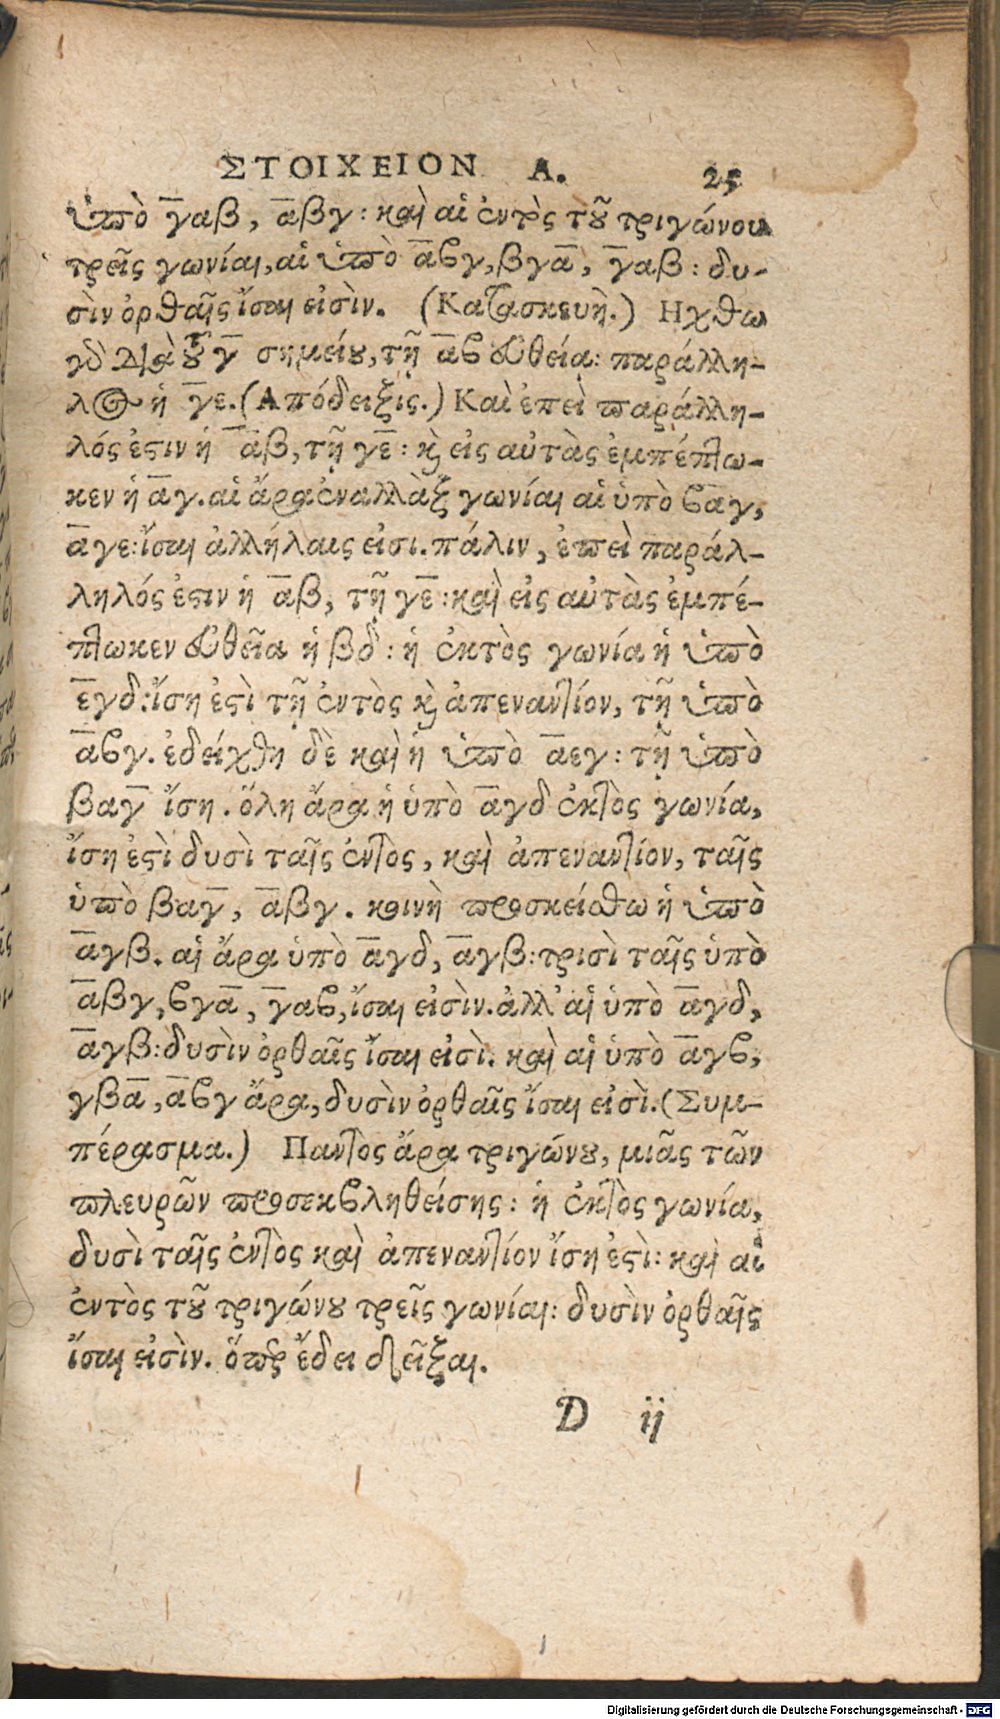 ΣΤΟΙΧΕΙΟΝ Α. 25
ὑπὸ γ̅αβ, α̅βγ: καὶ αἱ ἐντὸς τοῦ τριγώνου
τρεῖς γωνίαι, αἱ ὑπὸ α̅ϐγ, βγα̅, γ̅αβ: δυ-
σὶν ὀρθαῖς ἴσαι εἰσὶν. (Κατασκευὴ.) Ηχθω
γδ Διὰ τοῦ γ̅ σημείου, τῇ α̅ϐ εὐθείᾳ: παράλλη-
λος ἡ γ̅ε. (Απόδειξις.) Καὶ ἐπεὶ παράλλη-
λός ἐστιν ἡ α̅β, τῇ γε̅: καὶ εἰς αὐτὰς ἐμπέπτω-
κεν ἡ α̅γ. αἱ ἄρα ἐναλλὰξ γωνίαι αἱ ὑπὸ ϐα̅γ,
α̅γε: ἴσαι ἀλλήλαις εἰσι. πάλιν, ἐπεὶ παράλ-
ληλός ἐστιν ἡ α̅β, τῇ γε̅: καὶ εἰς αὐτὰς ἐμπέ-
πτωκεν εὐθεῖα ἡ βδ: ἡ ἐκτὸς γωνία ἡ ὑπὸ
ε̅γδ: ἴση ἐστὶ τῇ ἐντὸς καὶ ἀπεναντίον, τῇ ὑπὸ
α̅ϐγ. ἐδείχθη δὲ καὶ ἡ ὑπὸ α̅εγ: τῇ ὑπὸ
βαγ̅ ἴση. ὅλη ἄρα ἡ ὑπὸ α̅γδ ἐκτος γωνία,
ἴση ἐστὶ δυσὶ ταῖς ἐντος, καὶ ἀπεναντίον, ταῖς
ὑπὸ βαγ̅, α̅βγ. κοινὴ προσκείσθω ἡ ὑπὸ
α̅γβ. αἱ ἄρα ὑπὸ α̅γδ, α̅γβ: τρισὶ ταῖς ὑπὸ
α̅βγ, ϐγα̅, γ̅αϐ, ἴσαι εἰσὶν. ἀλλ' αἱ ὑπὸ α̅γδ,
α̅γβ: δυσὶν ὀρθαῖς ἴσαι εἰσὶ. καὶ αἱ ὑπὸ α̅γϐ,
γβα̅, α̅ϐγ ἄρα, δυσὶν ὀρθαῖς ἴσαι εἰσὶ. (Συμ-
πέρασμα.) Παντος ἄρα τριγώνου, μιᾶς τῶν
πλευρῶν προσεκϐληθείσης: ἡ ἐκτος γωνία,
δυσὶ ταῖς ἐντὸς καὶ ἀπεναντίον ἴση ἐστὶ: καὶ αἱ
ἐντὸς τοῦ τριγώνου τρεῖς γωνίαι: δυσὶν ὀρθαῖς
ἴσαι εἰσὶν. ὅπερ ἔδει δεῖξαι.
D ij
Digitalisierung gefördert durch die Deutsche Forschungsgemeinschaft - DFG